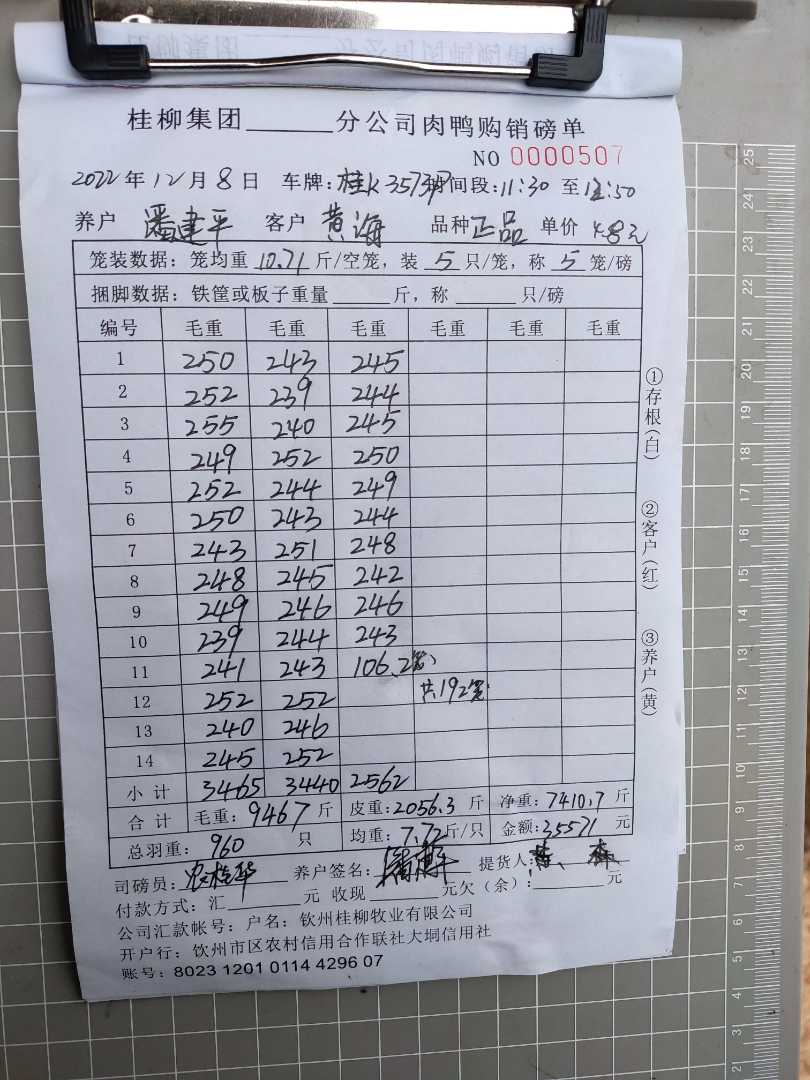 桂柳集团______分公司肉鸭购销磅单
NO 0000507
2022年12月8日 车牌:桂K35737 时间段:11:30 至 12:50
养户 潘建平 客户 黄海 品种 正品 单价 4.8元
笼装数据:笼均重 10.71 斤/空笼,装 5 只/笼,称 5 笼/磅
捆脚数据:铁筐或板子重量______斤,称______只/磅
编号 毛重 毛重 毛重 毛重 毛重 毛重
1 250 243 245
2 252 239 244
3 255 240 245
4 249 252 250
5 252 244 249
6 250 243 244
7 243 251 248
8 248 245 242
9 249 246 246
10 239 244 243
11 241 243 106.2笼
12 252 252 共192笼
13 240 246
14 245 252
小计 3465 3440 2562
合计 毛重:9467斤 皮重:2056.3斤 净重:7410.7斤
总羽重:960只 均重:7.72斤/只 金额:35571元
司磅员: 养户签名: 提货人:
付款方式:汇______元 收现______元欠(余):______元
公司汇款帐号:户名:钦州桂柳牧业有限公司
开户行:钦州市区农村信用合作联社大垌信用社
账号:8023 1201 0114 4296 07
①存根(白)
②客户(红)
③养户(黄)
25
24
23
22
21
20
19
18
17
16
15
14
13
12
11
10
9
8
7
6
5
4
3
2